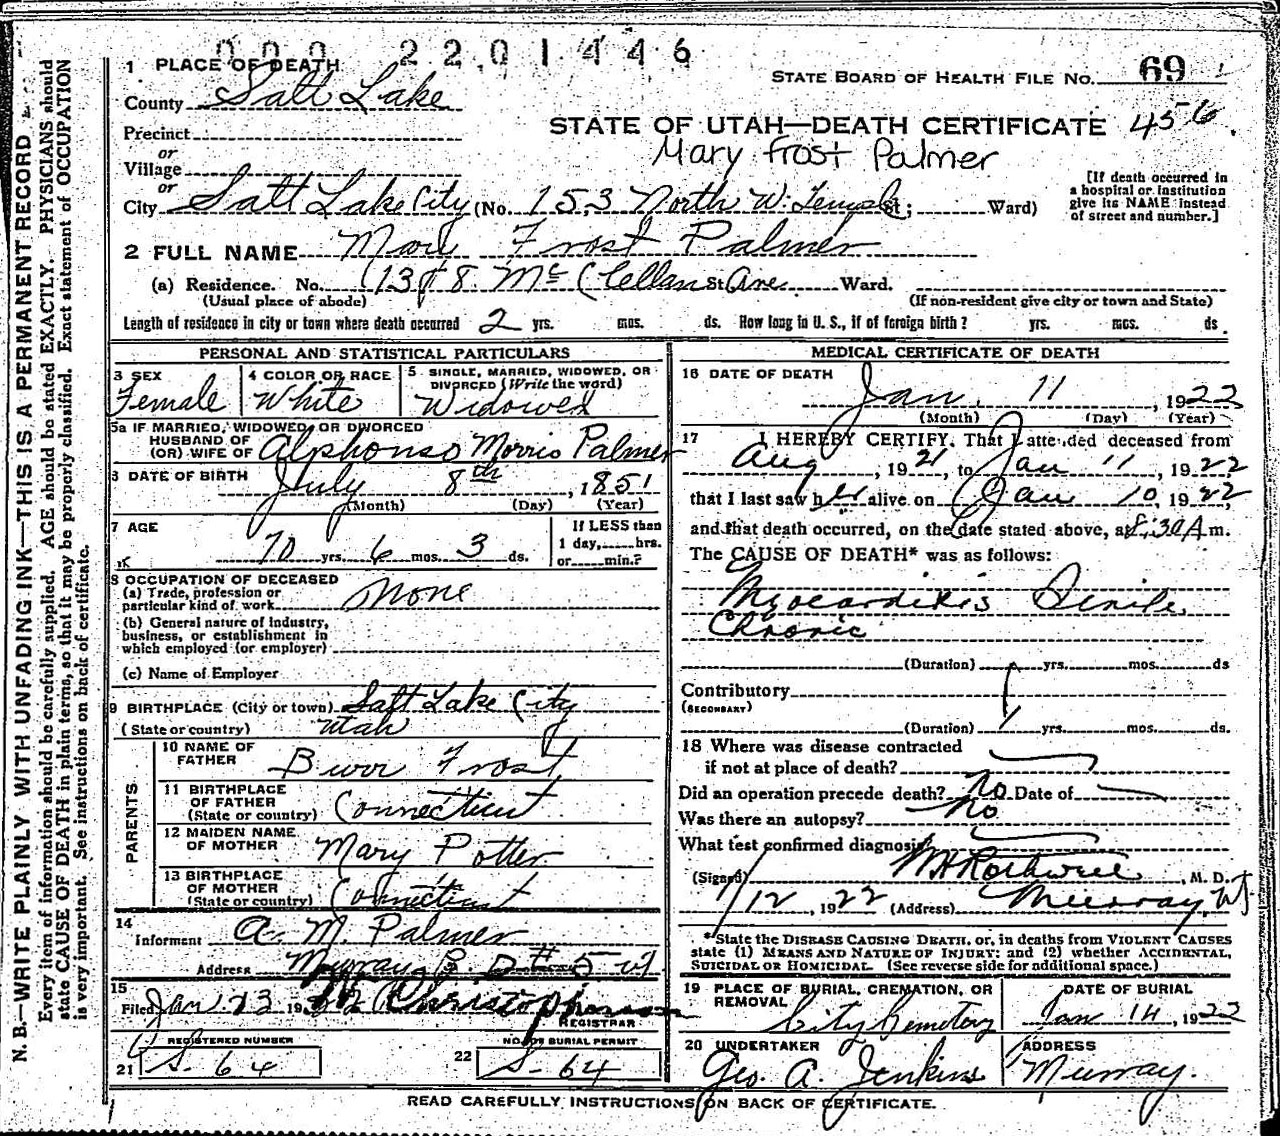 000 2201446
1 PLACE OF DEATH
STATE BOARD OF HEALTH FILE NO. 69
County Salt Lake
STATE OF UTAH—DEATH CERTIFICATE 456
Precinct
Mary Frost Palmer
or
Village
or
City Salt Lake City (No. 153 North W. Temple St; Ward)
[If death occurred in
a hospital or institution
give its NAME instead
of street and number.]
2 FULL NAME Mary Frost Palmer
(a) Residence. No. 1378 McClellan St Ave. Ward.
(Usual place of abode) (If non-resident give city or town and State)
Length of residence in city or town where death occurred 2 yrs. mos. ds. How long in U. S., if of foreign birth? yrs. mos. ds
PERSONAL AND STATISTICAL PARTICULARS
3 SEX Female
4 COLOR OR RACE White
5 SINGLE, MARRIED, WIDOWED, OR
DIVORCED (Write the word)
Widowed
5a IF MARRIED, WIDOWED, OR DIVORCED
HUSBAND OF
(OR) WIFE OF Alphonso Morris Palmer
6 DATE OF BIRTH July 8th, 1851
(Month) (Day) (Year)
7 AGE 70 yrs. 6 mos. 3 ds.
If LESS than
1 day, hrs.
or min.?
8 OCCUPATION OF DECEASED
(a) Trade, profession or
particular kind of work None
(b) General nature of industry,
business, or establishment in
which employed (or employer)
(c) Name of Employer
9 BIRTHPLACE (City or town) Salt Lake City
(State or country) Utah
PARENTS
10 NAME OF
FATHER Burr Frost
11 BIRTHPLACE
OF FATHER
(State or country) Connecticut
12 MAIDEN NAME
OF MOTHER Mary Potter
13 BIRTHPLACE
OF MOTHER
(State or country) Connecticut
14
Informant A. M. Palmer
Address Murray R. D # 5 ut
15
Filed Jan. 13 1922 Christopherson
REGISTRAR
REGISTERED NUMBER
21 S-64
NO. OF BURIAL PERMIT
22 S-64
MEDICAL CERTIFICATE OF DEATH
16 DATE OF DEATH
Jan. 11, 1922
(Month) (Day) (Year)
17 I HEREBY CERTIFY, That I attended deceased from
Aug, 1921, to Jan 11, 1922
that I last saw her alive on Jan 10, 1922,
and that death occurred, on the date stated above, at 8:30 A m.
The CAUSE OF DEATH* was as follows:
Myocarditis Senile
Chronic
(Duration) 1 yrs. mos. ds
Contributory
(SECONDARY)
(Duration) 1 yrs. mos. ds.
18 Where was disease contracted
if not at place of death?
Did an operation precede death? No Date of
Was there an autopsy? No
What test confirmed diagnosis
(Signed) W H Rothwell, M. D.
1/12, 1922 (Address) Murray, Ut
*State the DISEASE CAUSING DEATH, or, in deaths from VIOLENT CAUSES
state (1) MEANS AND NATURE OF INJURY; and (2) whether ACCIDENTAL,
SUICIDAL OR HOMICIDAL. (See reverse side for additional space.)
19 PLACE OF BURIAL, CREMATION, OR
REMOVAL City Cemetery
DATE OF BURIAL
Jan 14, 1922
20 UNDERTAKER
Geo. A. Jenkins
ADDRESS
Murray.
READ CAREFULLY INSTRUCTIONS ON BACK OF CERTIFICATE.
N. B.—WRITE PLAINLY WITH UNFADING INK—THIS IS A PERMANENT RECORD
Every item of information should be carefully supplied. AGE should be stated EXACTLY. PHYSICIANS should
state CAUSE OF DEATH in plain terms, so that it may be properly classified. Exact statement of OCCUPATION
is very important. See instructions on back of certificate.